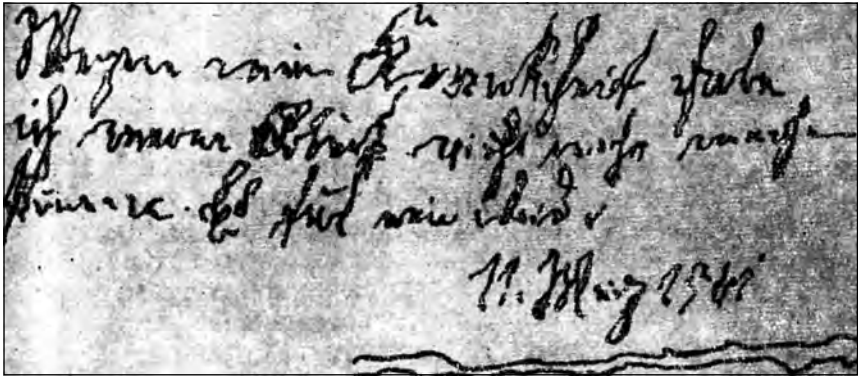 Wegen mein Krankheit habe
ich meine Arbeit nicht mehr mach
könne. Es tut mir leid.
11. Merz 1941